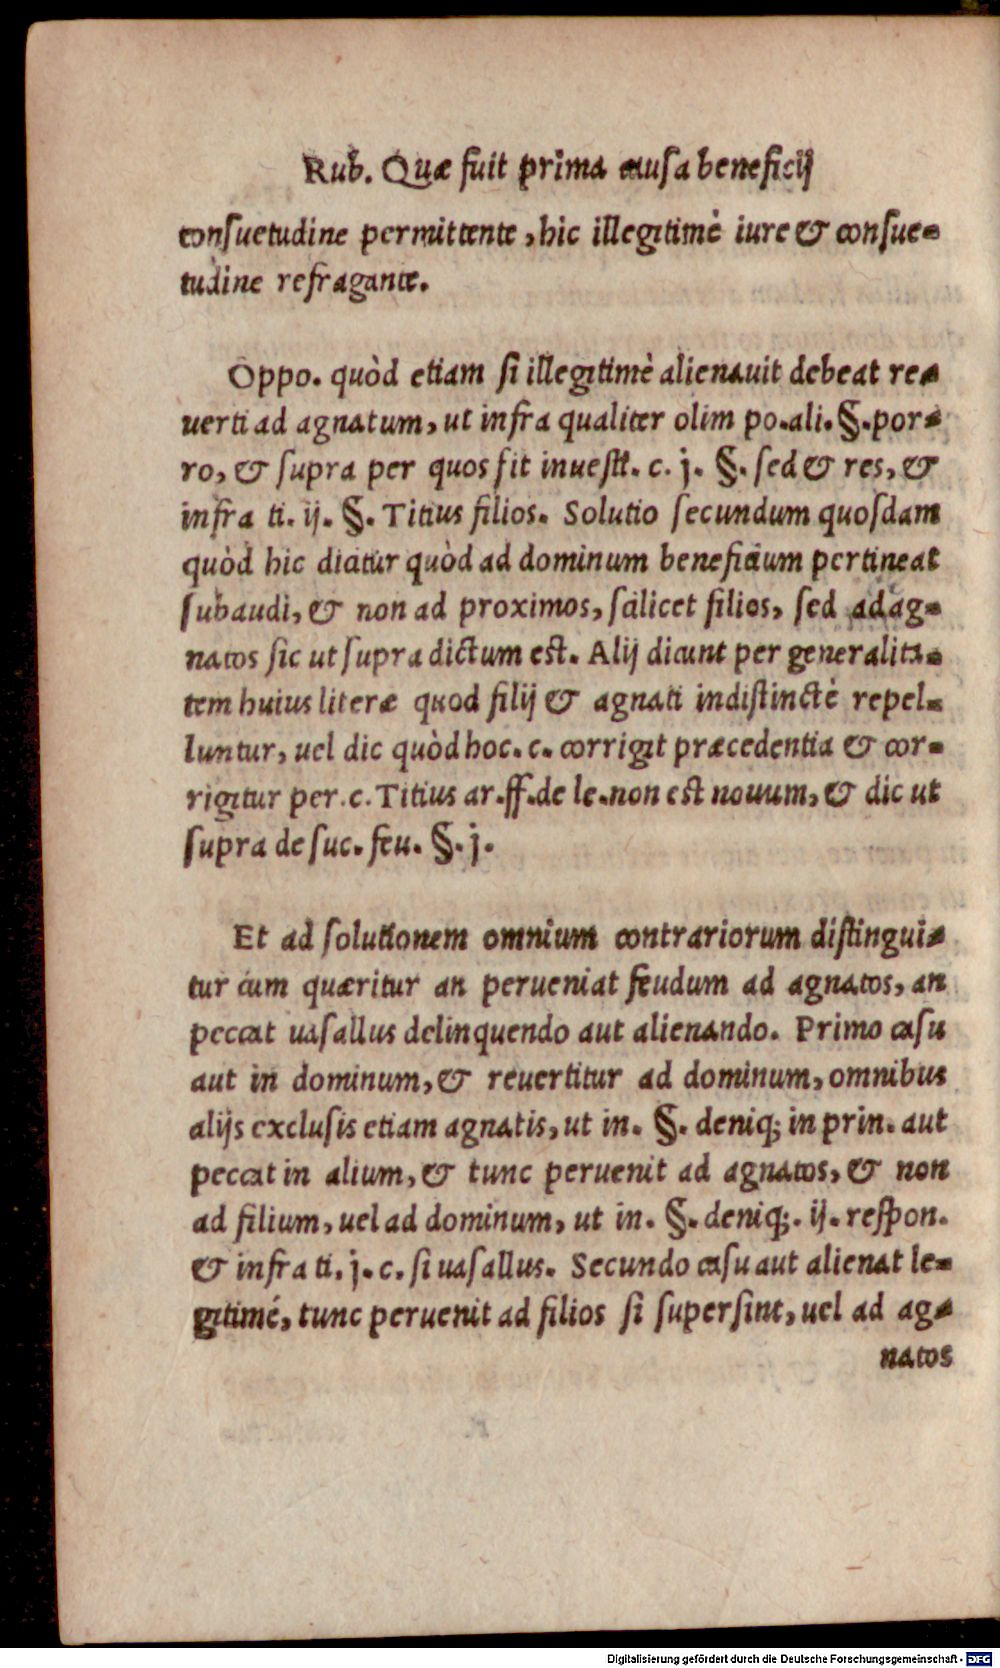 Rub. Quæ fuit prima causa beneficij
consuetudine permittente, hic illegitimè iure & consue-
tudine refragante.
Oppo. quòd etiam si illegitimè alienauit debeat re-
uerti ad agnatum, ut infra qualiter olim po.ali. §.por-
ro, & supra per quos fit inuesti. c. j. §. sed & res, &
infra ti. ij. §. Titius filios. Solutio secundum quosdam
quòd hic dicitur quòd ad dominum beneficium pertineat
subaudi, & non ad proximos, scilicet filios, sed ad ag-
natos sic ut supra dictum est. Alij dicunt per generalita-
tem huius literæ quod filij & agnati indistinctè repel-
luntur, uel dic quòd hoc. c. corrigit præcedentia & cor-
rigitur per. c. Titius ar. ff. de le. non est nouum, & dic ut
supra de suc. feu. §. j.
Et ad solutionem omnium contrariorum distingui-
tur cum quæritur an perueniat feudum ad agnatos, an
peccat uasallus delinquendo aut alienando. Primo casu
aut in dominum, & reuertitur ad dominum, omnibus
alijs exclusis etiam agnatis, ut in. §. deniq; in prin. aut
peccat in alium, & tunc peruenit ad agnatos, & non
ad filium, uel ad dominum, ut in. §. deniq;. ij. respon.
& infra ti. j. c. si uasallus. Secundo casu aut alienat le-
gitimé, tunc peruenit ad filios si supersint, uel ad ag-
natos
Digitalisierung gefördert durch die Deutsche Forschungsgemeinschaft - DFG